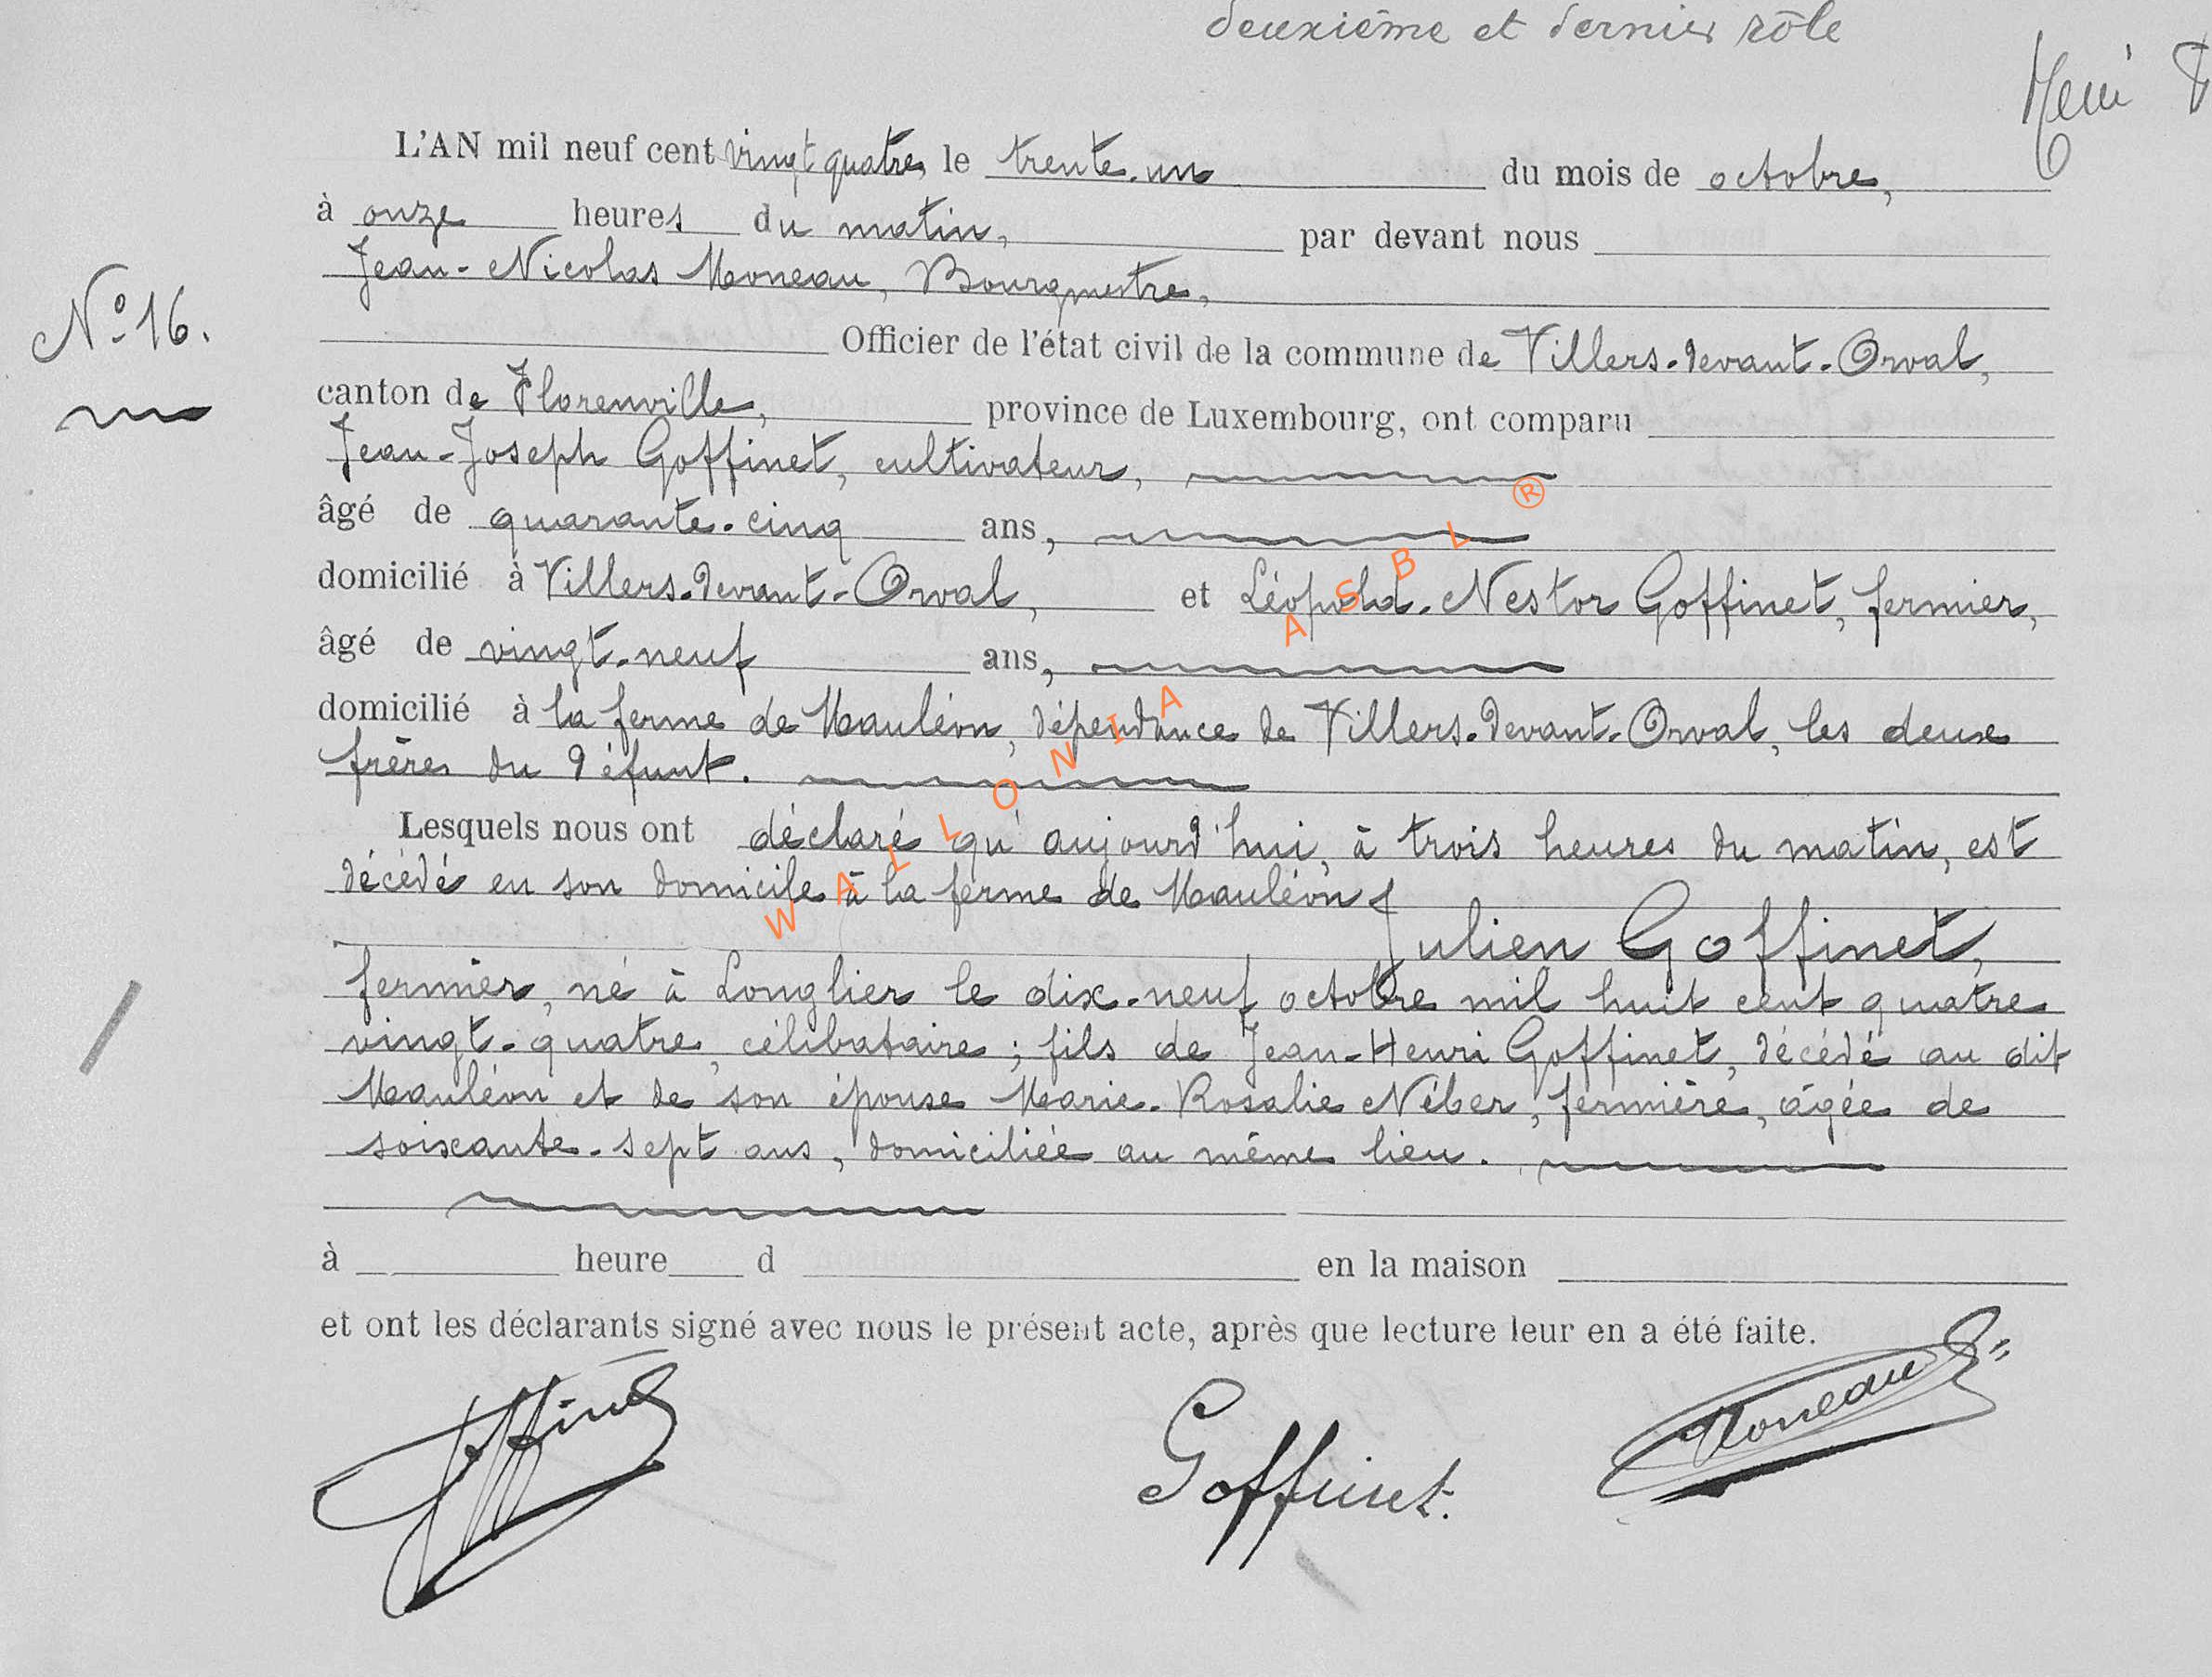 deuxième et dernier rôle
L'AN mil neuf cent vingt quatre, le trente-un du mois de octobre,
à onze heures du matin, par devant nous
Jean-Nicolas Moneau, Bourgmestre,
N° 16.
Officier de l'état civil de la commune de Villers-devant-Orval,
canton de Florenville, province de Luxembourg, ont comparu
Jean-Joseph Goffinet, cultivateur,
âgé de quarante-cinq ans,
domicilié à Villers-devant-Orval, et Léopold-Nestor Goffinet, fermier,
âgé de vingt-neuf ans,
domicilié à la ferme de Mauléon, dépendance de Villers-devant-Orval, les deux
frères du défunt.
Lesquels nous ont déclaré qu'aujourd'hui, à trois heures du matin, est
décédé en son domicile à la ferme de Mauléon
Julien Goffinet,
fermier, né à Longlier le dix-neuf octobre mil huit cent quatre
vingt-quatre, célibataire ; fils de Jean-Henri Goffinet, décédé au dit
Mauléon et de son épouse Marie-Rosalie Néber, fermière, âgée de
soixante-sept ans, domiciliée au même lieu.
à heure d en la maison
et ont les déclarants signé avec nous le présent acte, après que lecture leur en a été faite.
Goffinet Goffinet. Moneau
WALLONIA ASBL ®